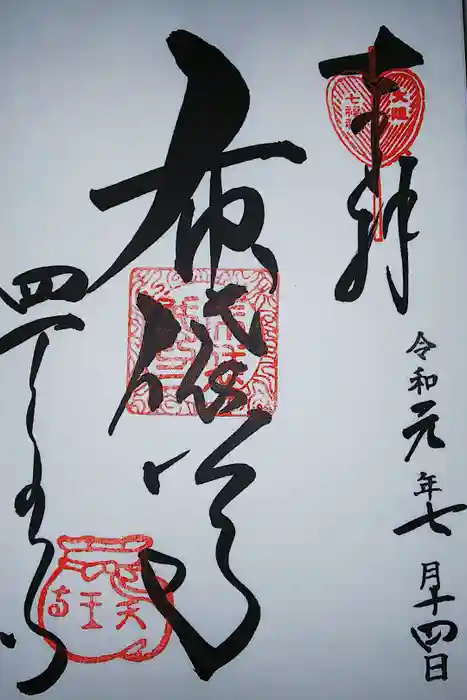 奉拝
大阪七福神
令和元年七月十四日
布袋尊
四天王寺
四天王寺